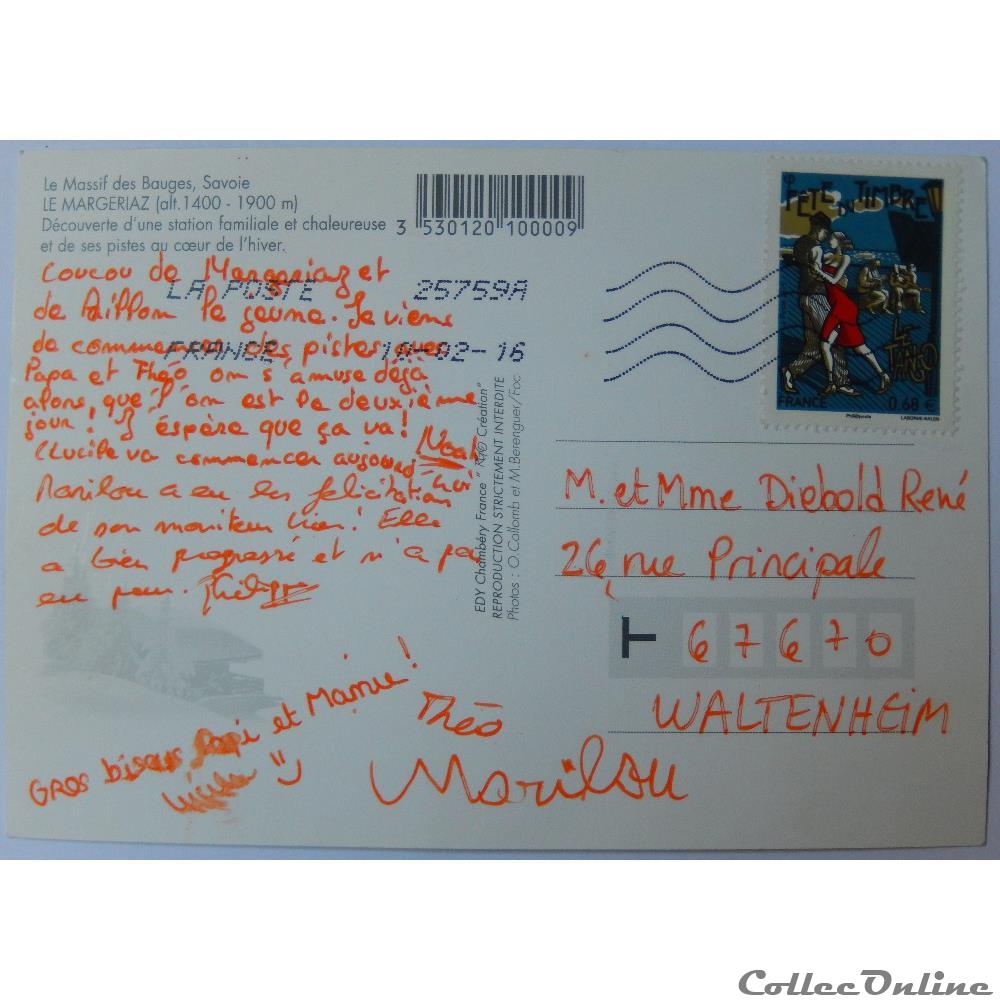 Le Massif des Bauges, Savoie
LE MARGERIAZ (alt.1400 - 1900 m)
Découverte d'une station familiale et chaleureuse
et de ses pistes au cœur de l'hiver.
3 530120 100009
Coucou de Margeriaz et
de Aillon le jeune. Je viens
de commencer des pistes avec
Papa et Théo on s'amuse déjà
alors, que l'on est le deuxième
jour! J'espère que ça va! Noah
Lucile va commencer aujourd'hui
Marilou a eu les félicitations
de son moniteur hier! Elle
a bien progressé et n'a pas
eu peur. Philippe
Gros bisous Papi et Mamie!
Lucile
Théo
Marilou
LA POSTE 25759A
FRANCE 02-16
EDY Chambéry France
REPRODUCTION STRICTEMENT INTERDITE
Photos : O.Collomb et M.Berenguer/Foc
FÊTE DU TIMBRE
LE TANGO
FRANCE 0.68 €
M. et Mme Diebold René
26, rue Principale
T 67670
WALTENHEIM
CollecOnline